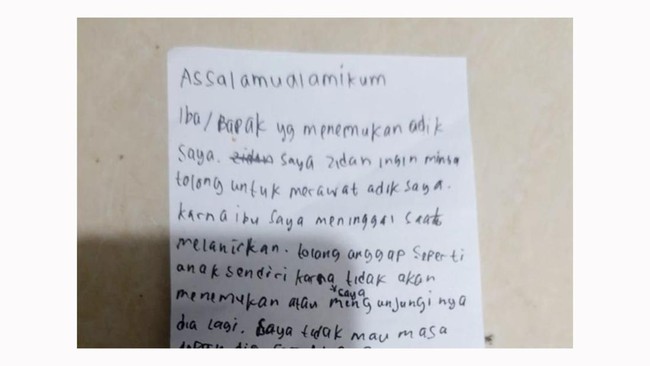 Assalamualamikum
Iba/Bapak yg menemukan adik
saya. zidan saya zidan ingin minsa
tolong untuk merawat adik saya.
karna ibu saya meninggal saat
melanirkan. tolong anggap seperti
anak sendiri karna tidak akan
*saya
menemukan atau mengunjungi nya
dia lagi. Saya tidak mau masa